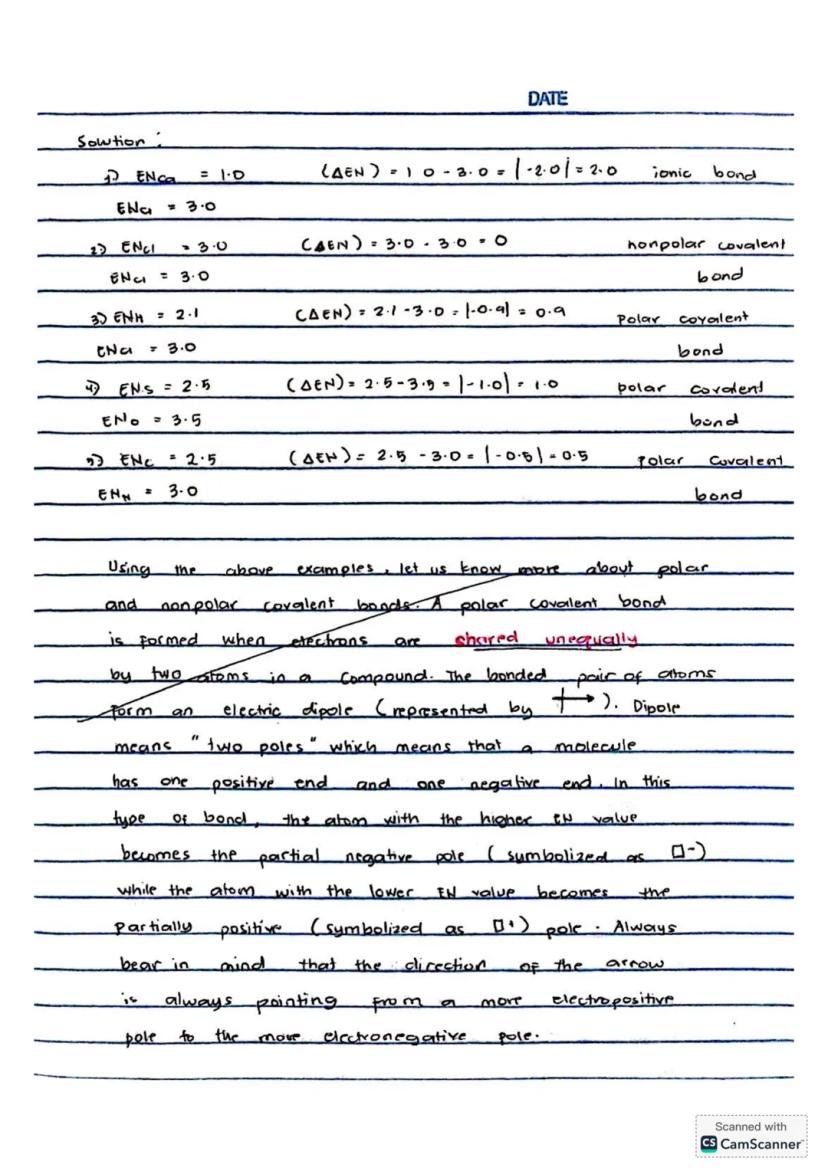 DATE
Solution :
1) ENCa = 1.0 (ΔEN) = 1 0 - 3.0 = |-2.0| = 2.0 ionic bond
ENCl = 3.0
2) ENCl = 3.0 (ΔEN) = 3.0 - 3.0 = 0 nonpolar covalent
ENCl = 3.0 bond
3) ENH = 2.1 (ΔEN) = 2.1 - 3.0 = |-0.9| = 0.9 Polar covalent
ENCl = 3.0 bond
4) ENS = 2.5 (ΔEN) = 2.5 - 3.5 = |-1.0| = 1.0 polar covalent
ENO = 3.5 bond
5) ENC = 2.5 (ΔEN) = 2.5 - 3.0 = |-0.5| = 0.5 Polar Covalent
ENN = 3.0 bond
Using the above examples, let us know more about polar
and nonpolar covalent bonds. A polar covalent bond
is formed when electrons are shared unequally
by two atoms in a compound. The bonded pair of atoms
form an electric dipole (represented by ⟼). Dipole
means "two poles" which means that a molecule
has one positive end and one negative end. In this
type of bond, the atom with the higher EN value
becomes the partial negative pole (symbolized as □-)
while the atom with the lower EN value becomes the
partially positive (symbolized as □+) pole. Always
bear in mind that the direction of the arrow
is always pointing from a more electropositive
pole to the more electronegative pole.
Scanned with
CS CamScanner